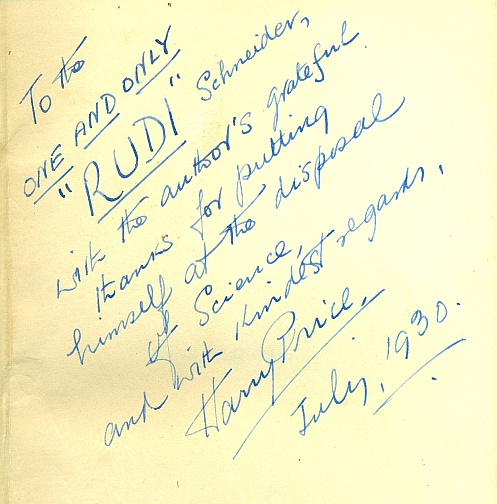 To the
ONE AND ONLY
"RUDI" Schneider,
with the author's grateful
thanks for putting
himself at the disposal
of Science,
and with kindest regards,
Harry Price.
July, 1930.